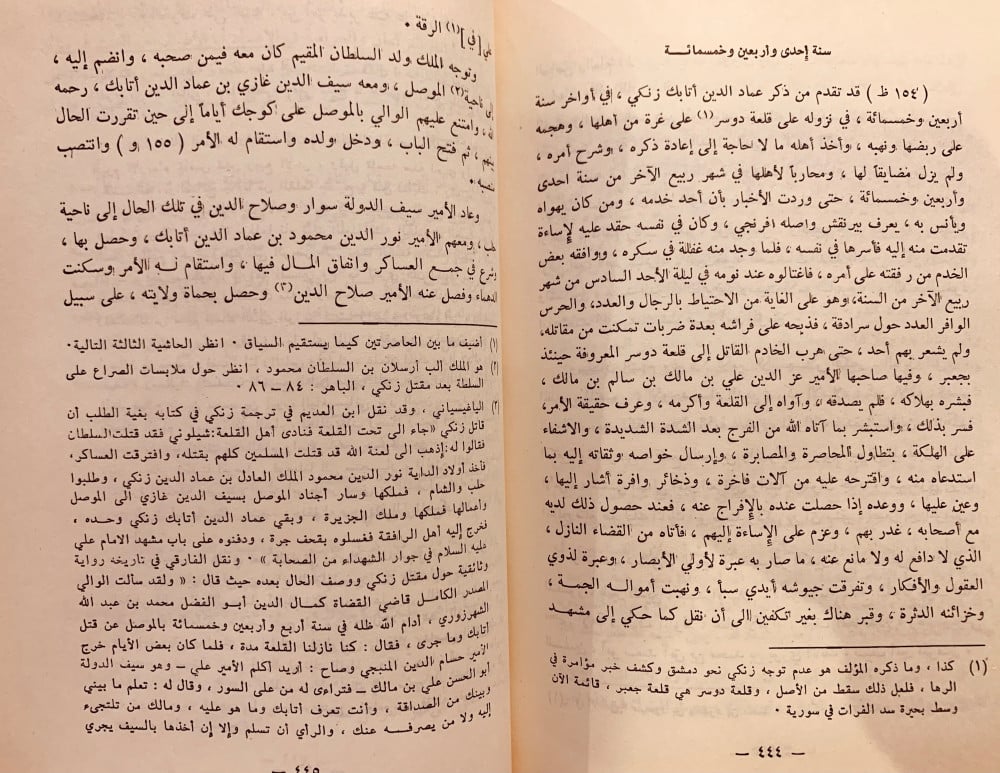 سنة إحدى وأربعين وخمسمائة
( ١٥٤ ظ ) قد تقدم من ذكر عماد الدين أتابك زنكي ، في أواخر سنة
أربعين وخمسمائة ، في نزوله على قلعة دوسر(١) على غرة من أهلها ، وهجمه
على ربضها ونهبه ، وأخذ أهله ما لا حاجة إلى إعادة ذكره ، وشرح أمره ،
ولم يزل مضايقاً لها ، ومحارباً لأهلها في شهر ربيع الآخر من سنة احدى
وأربعين وخمسمائة ، حتى وردت الأخبار بأن أحد خدمه ، ومن كان يهواه
ويأنس به ، يعرف بيرنقش واصله افرنجي ، وكان في نفسه حقد عليه لإساءة
تقدمت منه إليه فأسرها في نفسه ، فلما وجد منه غفلة في سكره ، ووافقه بعض
الخدم من رفقته على أمره ، فاغتالوه عند نومه في ليلة الأحد السادس من شهر
ربيع الآخر من السنة، وهو على الغاية من الاحتياط بالرجال والعدد، والحرس
الوافر العدد حول سرادقة ، فذبحه على فراشه بعدة ضربات تمكنت من مقاتله،
ولم يشعر بهم أحد ، حتى هرب الخادم القاتل إلى قلعة دوسر المعروفة حينئذ
بجعبر ، وفيها صاحبها الأمير عز الدين علي بن مالك بن سالم بن مالك ،
فبشره بهلاكه ، فلم يصدقه ، وآواه إلى القلعة وأكرمه ، وعرف حقيقة الأمر،
فسر بذلك ، واستبشر بما آتاه الله من الفرج بعد الشدة الشديدة ، والاشفاء
على الهلكة ، بتطاول المحاصرة والمصابرة ، وإرسال خواصه وثقاته إليه بما
استدعاه منه ، واقترحه عليه من آلات فاخرة ، وذخائر وافرة أشار إليها ،
وعين عليها ، ووعده إذا حصلت عنده بالإفراج عنه ، فعند حصول ذلك لديه
مع أصحابه ، غدر بهم ، وعزم على الإساءة إليهم ، فأتاه من القضاء النازل ،
الذي لا دافع له ولا مانع عنه ، ما صار به عبرة لأولي الأبصار ، وعبرة لذوي
العقول والأفكار ، وتفرقت جيوشه أيدي سبأ ، ونهبت أمواله الجمة ،
وخزائنه الدثرة ، وقبر هناك بغير تكفين الى أن نقل كما حكي إلى مشهد
(١) كذا ، وما ذكره المؤلف هو عدم توجه زنكي نحو دمشق وكشف خبر مؤامرة في
الرها ، فلعل ذلك سقط من الأصل ، وقلعة دوسر هي قلعة جعبر ، قائمة الآن
وسط بحيرة سد الفرات في سورية ٠
— ٤٤٤ —
علي [في](١) الرقة ٠
وتوجه الملك ولد السلطان المقيم كان معه فيمن صحبه ، وانضم إليه ،
إلى ناحية(٢) الموصل ، ومعه سيف الدين غازي بن عماد الدين أتابك ، رحمه
الله ، وامتنع عليهم الوالي بالموصل علي كوجك أياماً إلى حين تقررت الحال
بينهم ، ثم فتح الباب ، ودخل ولده واستقام له الأمر ( ١٥٥ و ) وانتصب
منصبه ٠
وعاد الأمير سيف الدولة سوار وصلاح الدين في تلك الحال إلى ناحية
حلب ، ومعهم الأمير نور الدين محمود بن عماد الدين أتابك ، وحصل بها ،
وشرع في جمع العساكر وانفاق المال فيها ، واستقام له الأمر وسكنت
الدهماء وفصل عنه الأمير صلاح الدين(٣) وحصل بحماة ولايته ، على سبيل
(١) أضيف ما بين الحاصرتين كيما يستقيم السياق ٠ انظر الحاشية الثالثة التالية٠
(٢) هو الملك ألب أرسلان بن السلطان محمود ، انظر حول ملابسات الصراع على
السلطة بعد مقتل زنكي ، الباهر : ٨٤ – ٨٦ ٠
(٣) الياغيسياني ، وقد نقل ابن العديم في ترجمة زنكي في كتابه بغية الطلب أن
قاتل زنكي «جاء الى تحت القلعة فنادى أهل القلعة:شيلوني فقد قتلت السلطان
فقالوا له:إذهب الى لعنة الله قد قتلت المسلمين كلهم بقتله، وافترقت العساكر،
فأخذ أولاد الداية نور الدين محمود الملك العادل بن عماد الدين زنكي ، وطلبوا
حلب والشام ، فملكها وسار أجناد الموصل بسيف الدين غازي الى الموصل
وأعمالها فملكها وملك الجزيرة ، وبقي عماد الدين أتابك زنكي وحده ،
فخرج إليه أهل الرافقة فغسلوه بقحف جرة ، ودفنوه على باب مشهد الامام علي
عليه السلام في جوار الشهداء من الصحابة » ٠ ونقل الفارقي في تاريخه رواية
وثائقية حول مقتل زنكي ووصف الحال بعده حيث قال : « ولقد سألت الوالي
الصدر الكامل قاضي القضاة كمال الدين أبو الفضل محمد بن عبد الله
الشهرزوري ، أدام الله ظله في سنة أربع وأربعين وخمسمائة بالموصل عن قتل
أتابك وما جرى ، فقال : كنا نازلنا القلعة مدة ، فلما كان بعض الأيام خرج
الأمير حسام الدين المنبجي وصاح : أريد أكلم الأمير علي – وهو سيف الدولة
أبو الحسن علي بن مالك – فتراءى له من على السور ، وقال له : تعلم ما بيني
وبينك من الصداقة ، وأنت تعرف أتابك وما هو عليه ، ومالك من تلتجىء
إليه ولا من يصرفه عنك ، والرأي أن تسلم وإلا إن أخذها بالسيف يجري
— ٤٤٥ —